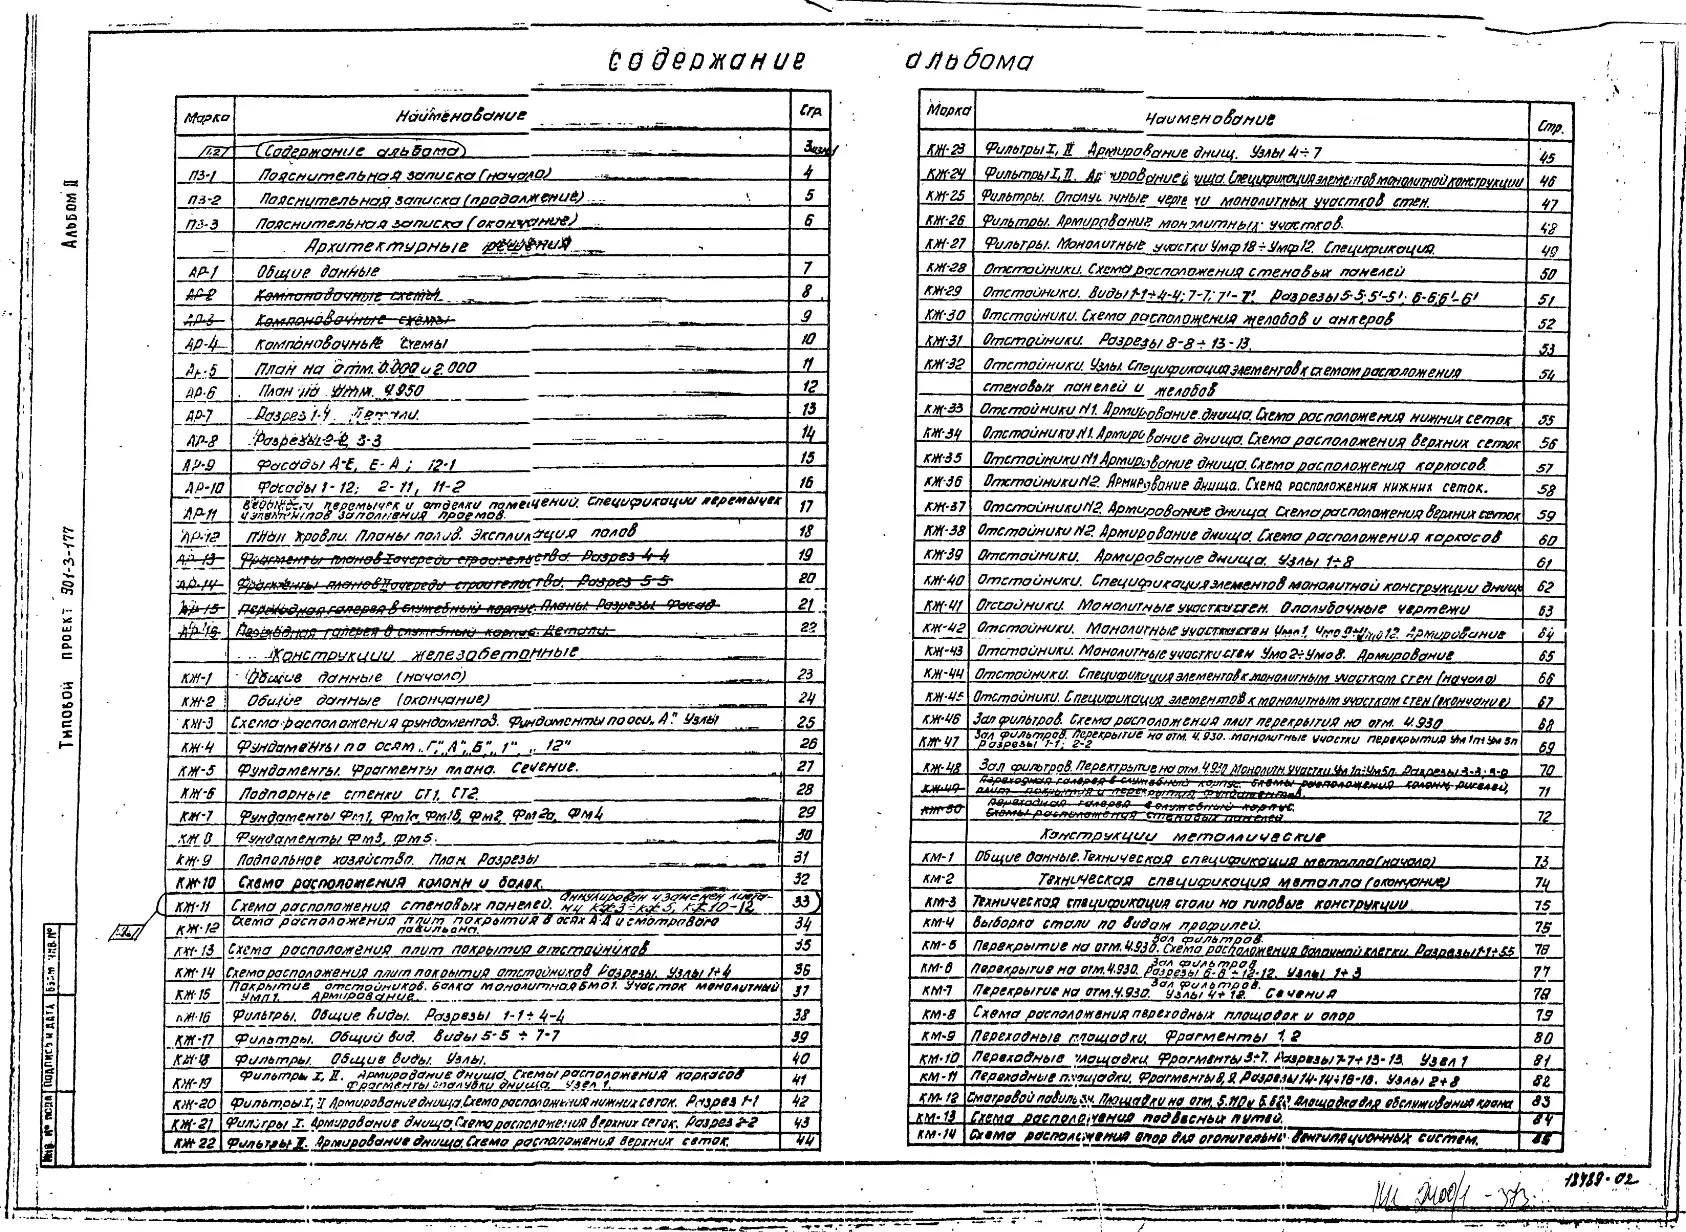 содержание альбома
Альбом II
Типовой проект 901-3-177
Марка Наименование Стр.
Содержание альбома 3
ПЗ-1 Пояснительная записка (начало) 4
ПЗ-2 Пояснительная записка (продолжение) 5
ПЗ-3 Пояснительная записка (окончание) 6
Архитектурные решения
АР-1 Общие данные 7
АР-2 Компоновочные схемы 8
АР-3 Компоновочные схемы 9
АР-4 Компоновочные схемы 10
АР-5 План на отм. 0.000 и 2.000 11
АР-6 План на отм. 4.950 12
АР-7 Разрез 1-1. Детали. 13
АР-8 Разрезы 2-2, 3-3 14
АР-9 Фасады А-Е, Е-А; 12-1 15
АР-10 Фасады 1-12; 2-11, 11-2 16
АР-11 Ведомости перемычек и отделки помещений. Спецификации перемычек
и элементов заполнения проемов. 17
АР-12 План кровли. Планы полов. Экспликация полов 18
АР-13 Фрагменты планов I очереди строительства. Разрез 4-4 19
АР-14 Фрагменты планов II очереди строительства. Разрез 5-5 20
АР-15 Переходная галерея в служебный корпус. Планы. Разрезы. Фасад 21
АР-16 Переходная галерея в служебный корпус. Детали. 22
Конструкции железобетонные
КЖ-1 Общие данные (начало) 23
КЖ-2 Общие данные (окончание) 24
КЖ-3 Схема расположения фундаментов. Фундаменты по оси „А". Узлы 25
КЖ-4 Фундаменты по осям „Г", „Д", „Б", „1", „12" 26
КЖ-5 Фундаменты. Фрагменты плана. Сечение. 27
КЖ-6 Подпорные стенки СТ1, СТ2. 28
КЖ-7 Фундаменты Фм1, Фм1а, Фм1б, Фм2, Фм2а, Фм4 29
КЖ-8 Фундаменты Фм3, Фм5. 30
КЖ-9 Подпольное хозяйство. План. Разрезы 31
КЖ-10 Схема расположения колонн и балок. 32
КЖ-11 Схема расположения стеновых панелей. Аннулирован и заменен листа-
ми 33
КЖ-12 Схема расположения плит покрытия в осях А-Д и смотрового
павильона. 34
КЖ-13 Схема расположения плит покрытия отстойников 35
КЖ-14 Схема расположения плит покрытия отстойников. Разрезы. Узлы 1÷4 36
КЖ-15 Покрытие отстойников. Балка монолитная Бмо1. Участок монолитный
Умп1. Армирование. 37
КЖ-16 Фильтры. Общие виды. Разрезы 1-1÷4-4 38
КЖ-17 Фильтры. Общий вид. Виды 5-5 ÷ 7-7 39
КЖ-18 Фильтры. Общие виды. Узлы. 40
КЖ-19 Фильтры I, II. Армирование днища. Схемы расположения каркасов
Фрагменты опалубки днища. Узел 1. 41
КЖ-20 Фильтры I, II Армирование днища. Схема расположения нижних сеток. Разрез 1-1 42
КЖ-21 Фильтры I. Армирование днища. Схема расположения верхних сеток. Разрез 2-2 43
КЖ-22 Фильтры II. Армирование днища. Схема расположения верхних сеток. 44
Марка Наименование Стр.
КЖ-23 Фильтры I, II Армирование днищ. Узлы 4÷7 45
КЖ-24 Фильтры I, II. Армирование днища. Спецификация элементов монолитной конструкции 46
КЖ-25 Фильтры. Опалубочные чертежи монолитных участков стен. 47
КЖ-26 Фильтры. Армирование монолитных участков. 48
КЖ-27 Фильтры. Монолитные участки Умф18÷Умф12. Спецификация. 49
КЖ-28 Отстойники. Схема расположения стеновых панелей 50
КЖ-29 Отстойники. Виды 1-1÷4-4; 7-7; 7'-7'. Разрезы 5-5; 5'-5'; 6-6; 6'-6' 51
КЖ-30 Отстойники. Схема расположения желобов и анкеров 52
КЖ-31 Отстойники. Разрезы 8-8÷13-13. 53
КЖ-32 Отстойники. Узлы. Спецификация элементов к схемам расположения
стеновых панелей и желобов 54
КЖ-33 Отстойники N1. Армирование днища. Схема расположения нижних сеток 55
КЖ-34 Отстойники N1. Армирование днища. Схема расположения верхних сеток 56
КЖ-35 Отстойники N1 Армирование днища. Схема расположения каркасов. 57
КЖ-36 Отстойники N2. Армирование днища. Схема расположения нижних сеток. 58
КЖ-37 Отстойники N2. Армирование днища. Схема расположения верхних сеток 59
КЖ-38 Отстойники N2. Армирование днища. Схема расположения каркасов 60
КЖ-39 Отстойники. Армирование днища. Узлы 1÷8 61
КЖ-40 Отстойники. Спецификация элементов монолитной конструкции днищ 62
КЖ-41 Отстойники. Монолитные участки стен. Опалубочные чертежи 63
КЖ-42 Отстойники. Монолитные участки стен Умо1, Умо9÷Умо12. Армирование 64
КЖ-43 Отстойники. Монолитные участки стен Умо2÷Умо8. Армирование 65
КЖ-44 Отстойники. Спецификация элементов к монолитным участкам стен (начало) 66
КЖ-45 Отстойники. Спецификация элементов к монолитным участкам стен (окончание) 67
КЖ-46 Зал фильтров. Схема расположения плит перекрытия на отм. 4.930 68
КЖ-47 Зал фильтров. Перекрытие на отм. 4.930. Монолитные участки перекрытия Ум1п; Ум5п
Разрезы 1-1; 2-2 69
КЖ-48 Зал фильтров. Перекрытие на отм. 4.930 Монолитн. участки Ум1п÷Ум5п. Разрезы 3-3; 4-4 70
КЖ-49 Переходная галерея в служебный корпус. Схемы расположения колонн, ригелей,
плит покрытия и перекрытия, фундаментов. 71
КЖ-50 Переходная галерея в служебный корпус.
Схемы расположения стеновых панелей 72
Конструкции металлические
КМ-1 Общие данные. Техническая спецификация металла (начало) 73
КМ-2 Техническая спецификация металла (окончание) 74
КМ-3 Техническая спецификация стали на типовые конструкции 75
КМ-4 Выборка стали по видам профилей. 75
КМ-5 Перекрытие на отм. 4.930. Зал фильтров. Схема расположения балочной клетки. Разрезы 1-1÷5-5 76
КМ-6 Перекрытие на отм. 4.930. Зал фильтров Разрезы 6-6÷12-12. Узлы 1÷3 77
КМ-7 Перекрытие на отм. 4.930. Зал фильтров. Узлы 4÷12. Сечения 78
КМ-8 Схема расположения переходных площадок и опор 79
КМ-9 Переходные площадки. Фрагменты 1, 2 80
КМ-10 Переходные площадки. Фрагменты 3÷7. Разрезы 7-7÷13-13. Узел 1 81
КМ-11 Переходные площадки. Фрагменты 8, 9. Разрезы 14-14÷18-18. Узлы 2÷8 82
КМ-12 Смотровой павильон. Площадки на отм. 5.110 и 6.623. Площадка для обслуживания крана 83
КМ-13 Схема расположения подвесных путей. 84
КМ-14 Схема расположения опор для отопительно-вентиляционных систем. 85
Инв. № подл. Подпись и дата Взам. инв. №
18489-02